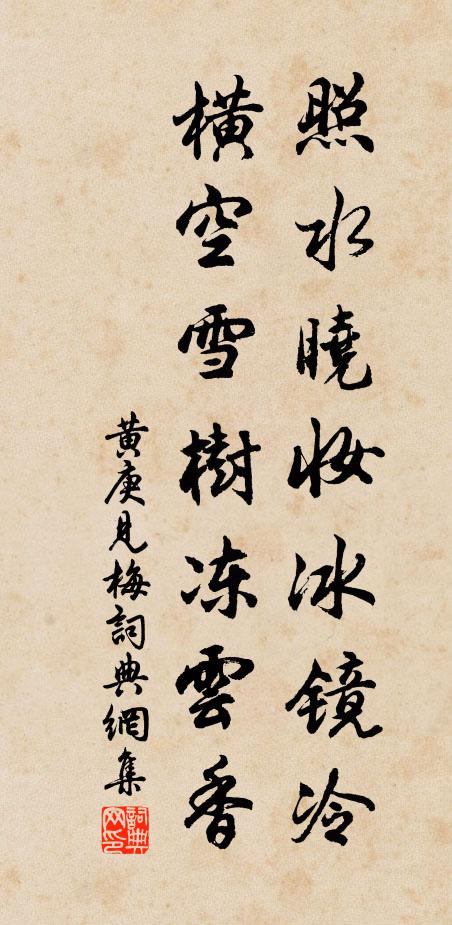 照水曉妝冰镜冷
橫空雪樹冻雲香
黄庚見梅詞典網集
詞典网印